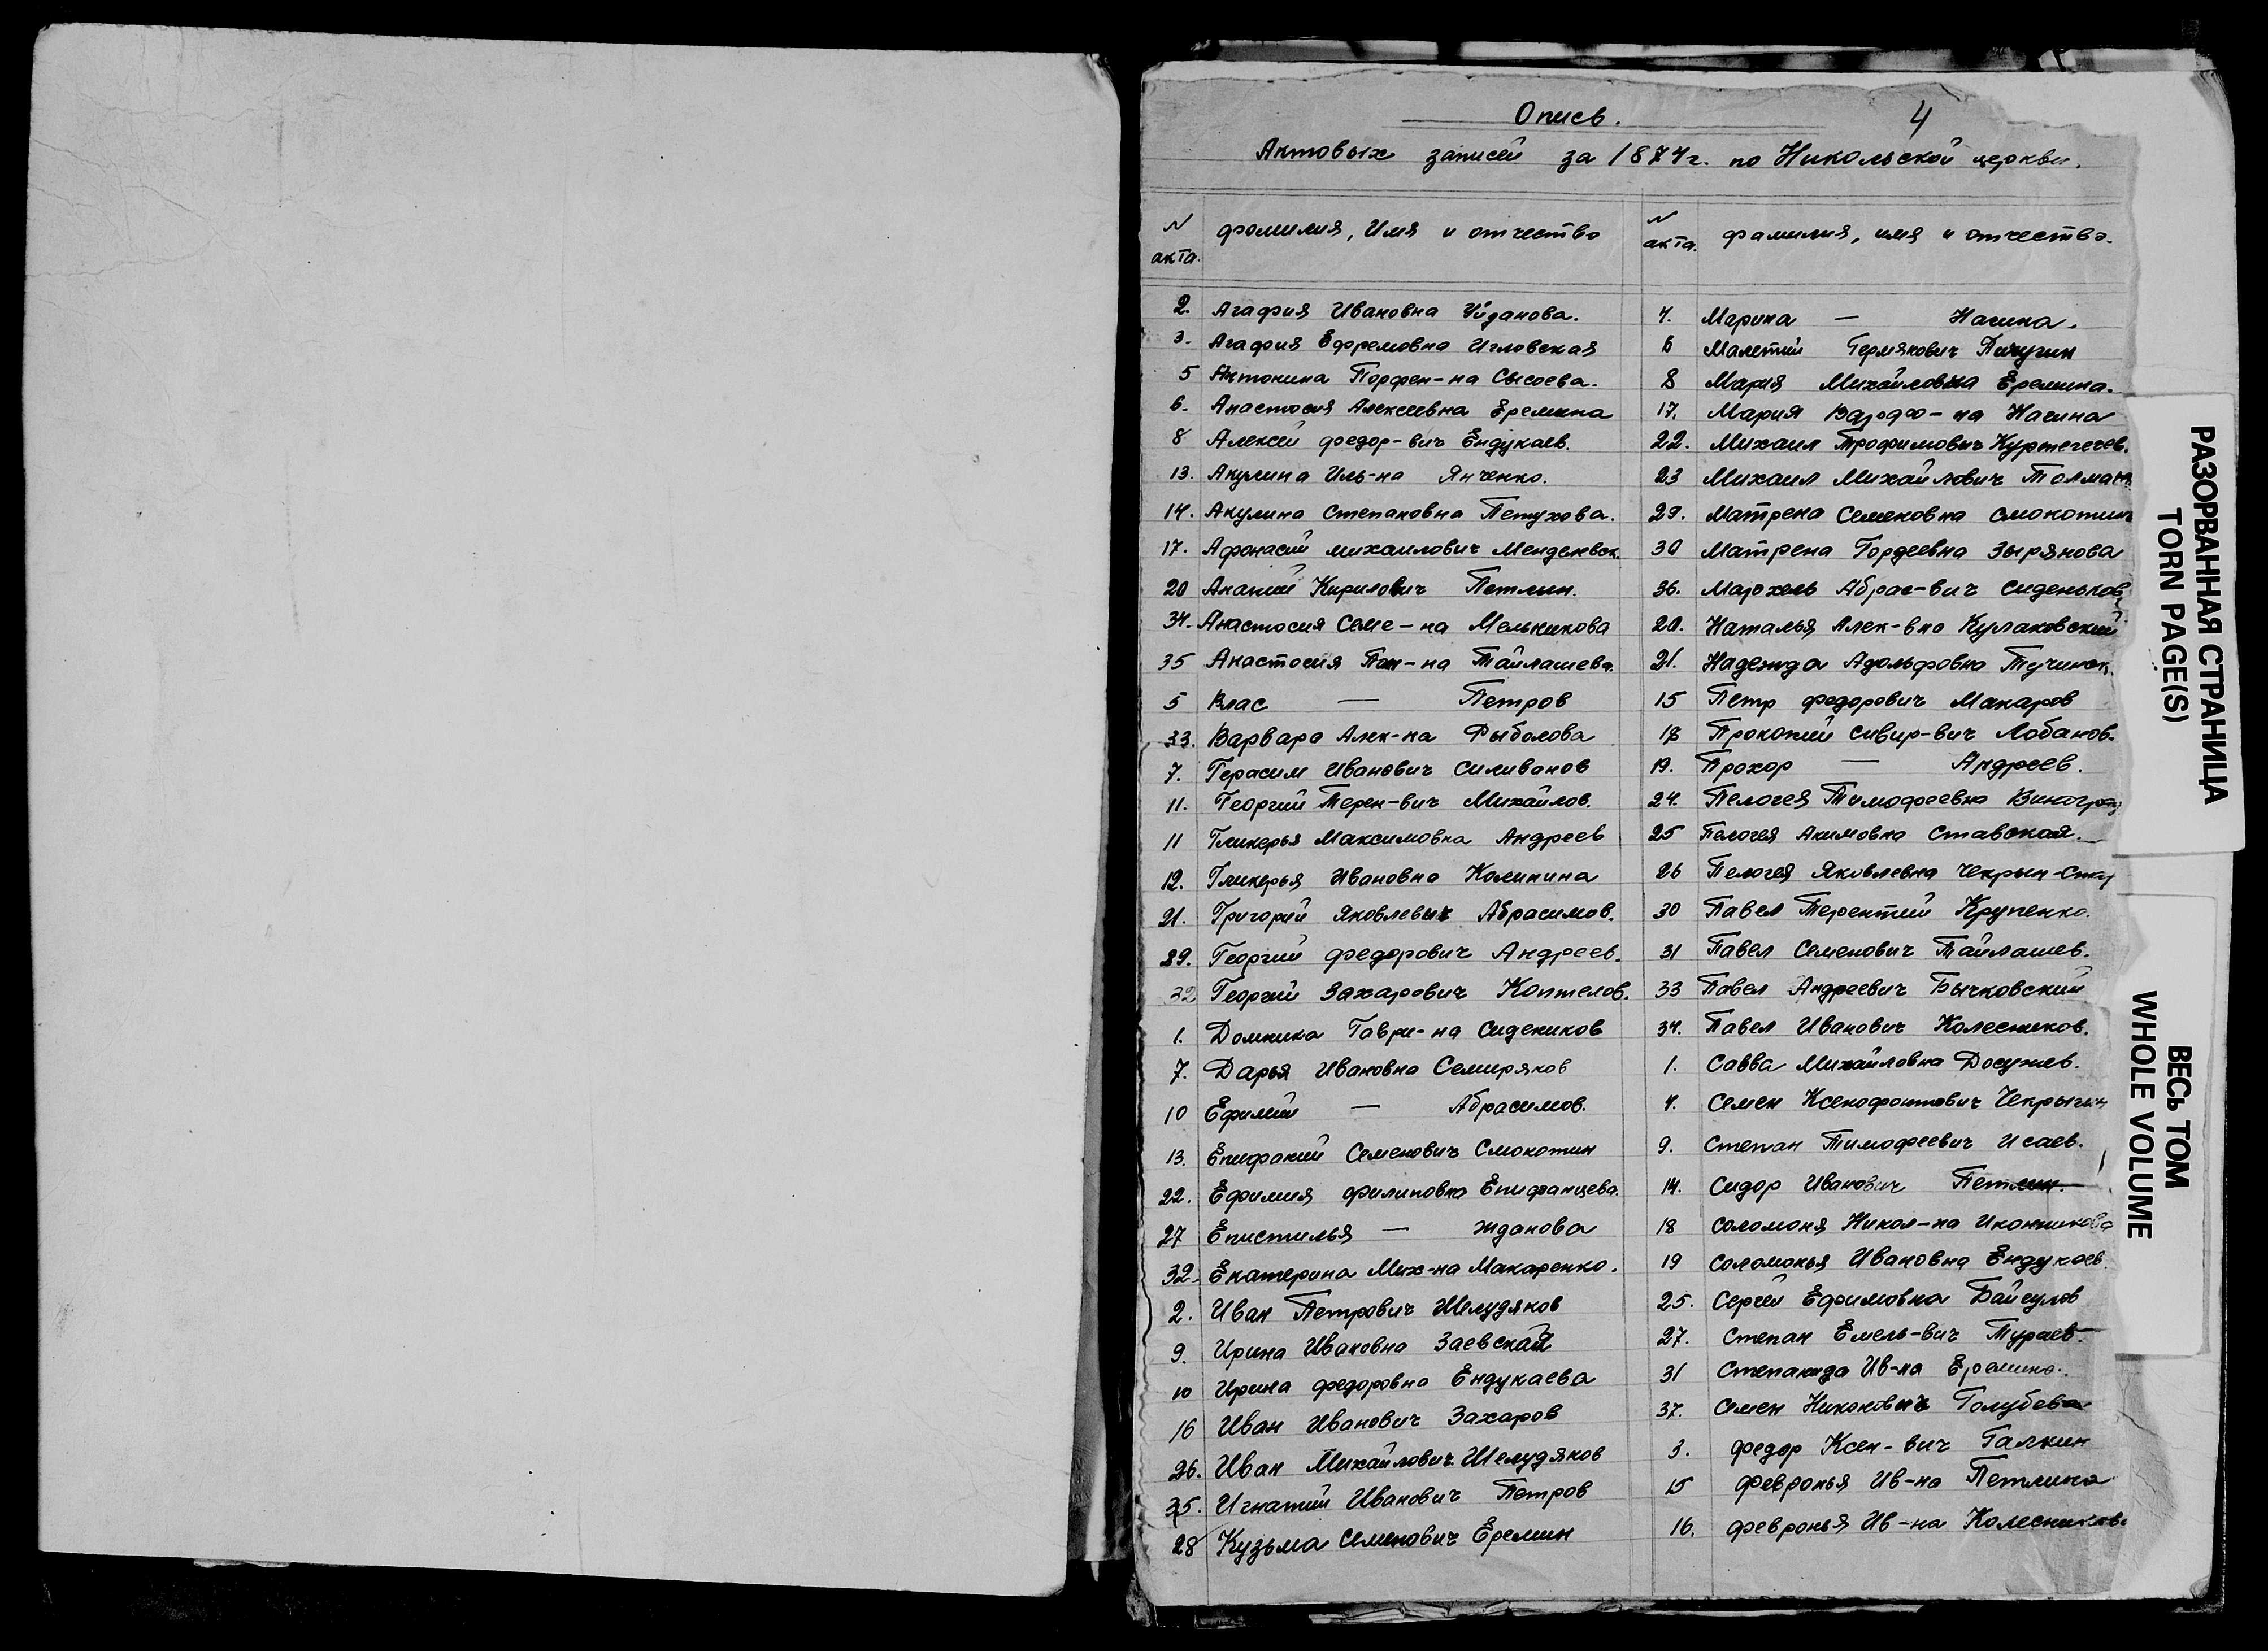 Опись.
4
Актовых записей за 1874г. по Никольской церкви.
N акта. фамилия, Имя и отчество
2. Агафия Ивановна Уйданова.
3. Агафия Ефремовна Игловская
5 Антонина Порфен-на Сысоева.
6. Анастосия Алексеевна Еремина
8 Алексей Федор-вич Ендукаев.
13. Акулина Иль-на Янченко.
14. Акулина Степановна Петухова.
17. Афонасий михаилович Менделевск.
20 Ананий Кирилович Петлин.
34. Анастосия Семе-на Мельникова
35 Анастосия Пан-на Тайлашева.
5 Влас — Петров
33. Варвара Алек-на Рыболова
7. Герасим Иванович Силиванов
11. Георгий Терен-вич Михайлов.
11 Гликерья Максимовна Андреев
12. Гликерья Ивановна Калинина
21. Григорий Яковлевич Абрасимов.
29. Георгий Федорович Андреев.
32 Георгий Захарович Коптелов.
1. Домника Гаври-на Сидеников
7. Дарья Ивановна Семиряков
10 Ефимий — Абрасимов.
13. Епифаний Семенович Смокотин
22. Ефимия Филиповна Епифанцева.
27 Епистилья — жданова
32. Екатерина Мих-на Макаренко.
2. Иван Петрович Шелудяков
9. Ирина Ивановна Заевская
10 Ирина Федоровна Ендукаева
16 Иван Иванович Захаров
26. Иван Михайлович Шелудяков
35. Игнатий Иванович Петров
28 Кузьма Семенович Еремин
N акта. фамилия, имя и отчество.
4. Марина — Нагина.
6 Малетий Пичугин
8 Мария Михайловна Еремина.
17. Мария Варфо-на Нагина
22. Михаил Трофимович Куртегечев.
23 Михаил Михайлович Толмач
29. Матрена Семеновна Смокотин
30 Матрена Гордеевна Зырянова
36. Абрас-вич Сиденьков
20. Наталья Алек-вна Кулаковский
21. Надежда Адольфовна Тучинск.
15 Петр Федорович Макаров
18 Прокопий Сивир-вич Лобанов.
19. Прохор — Андреев.
24. Пелогея Тимофеевна Виноград
25 Пелогея Акимовна Ставская.
26 Пелогея Яковлевна Чекрын-
30 Павел Терентий Крупенко.
31 Павел Семенович Тайлашев.
33 Павел Андреевич Бычковский
34. Павел Иванович Колесников.
1. Савва Михайловна Досужев.
4. Семен Ксенофонтович Чекрыгин
9. Степан Тимофеевич Исаев.
14. Сидор Иванович Петлин.
18 Соломоня Никол-на Иконникова
19 Соломонья Ивановна Ендукаев.
25. Сергей Ефимовна Байгулов
27. Степан Емель-вич Тураев.
31 Степанида Ив-на Еремина.
37. Семен Никонович Голубева
3. Федор Ксен-вич Галкин
15 Февронья Ив-на Петлина
16. Февронья Ив-на Колесников
РАЗОРВАННАЯ СТРАНИЦА
TORN PAGE(S)
ВЕСЬ ТОМ
WHOLE VOLUME